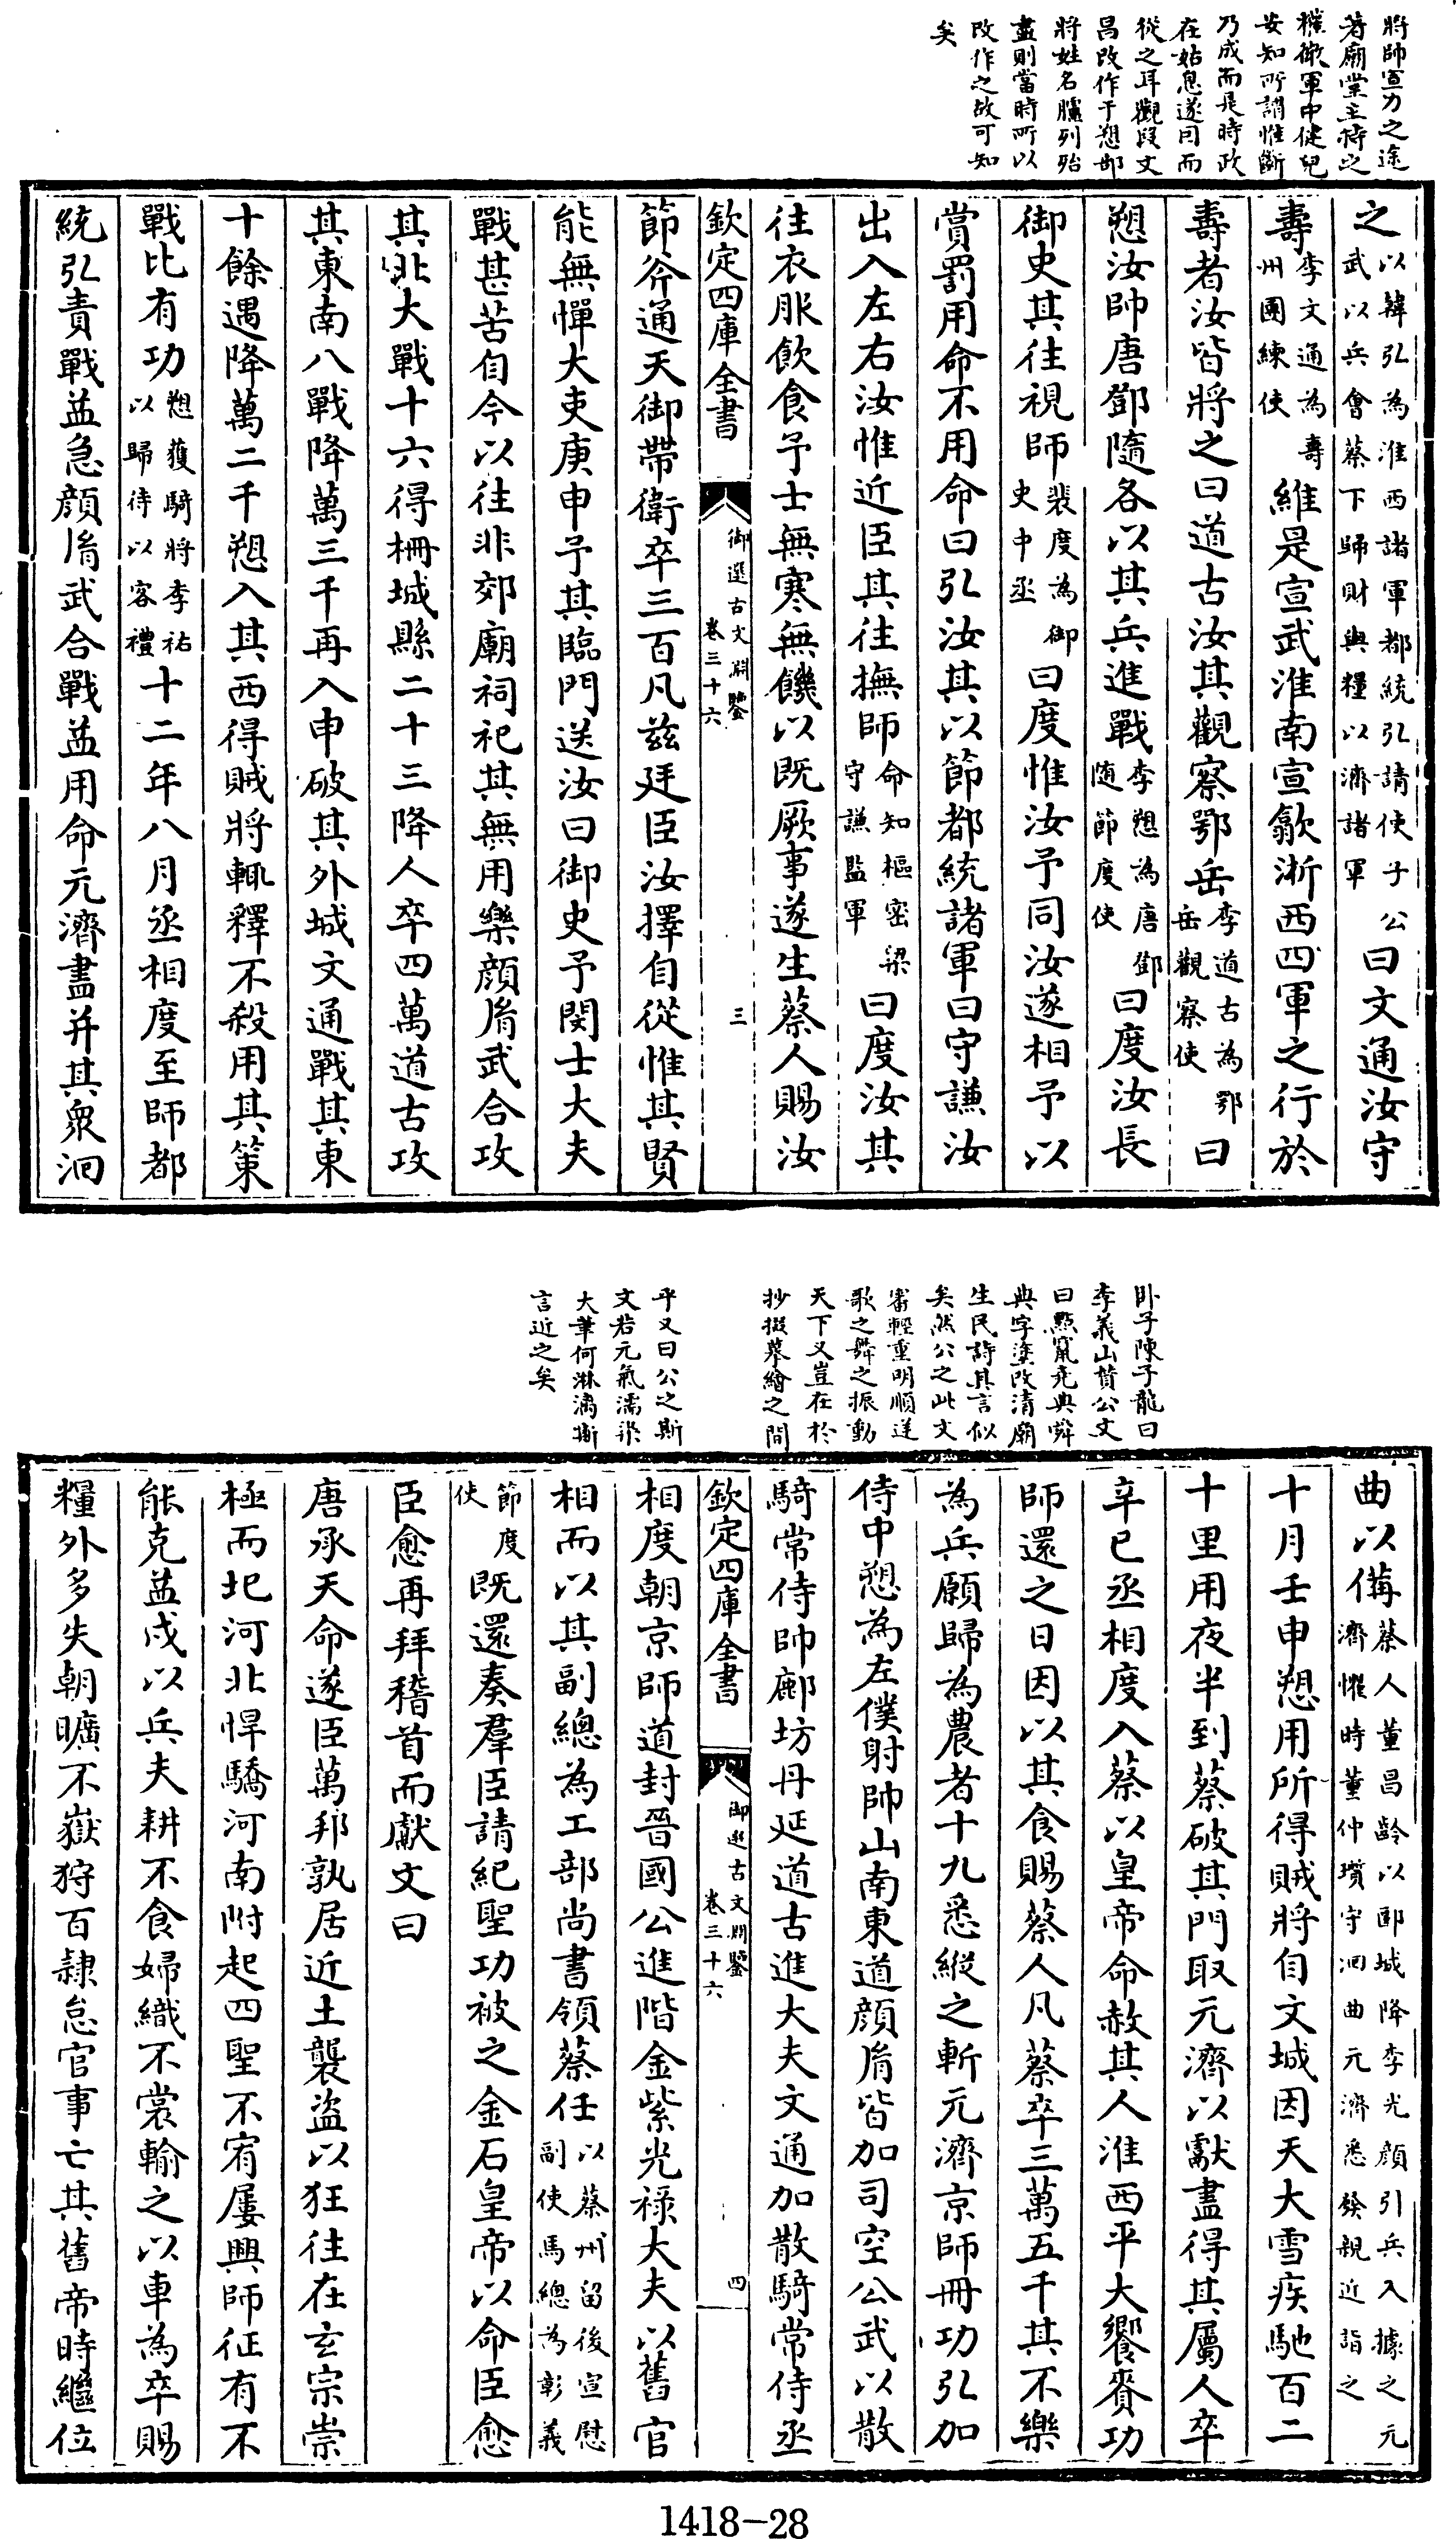 將帥宣力之途
著廟堂主持之
權徹軍中健兒
安知所謂惟斷
乃成而是時政
在姑息遂因而
從之耳觀段文
昌改作于愬部
將姓名臚列殆
盡則當時所以
改作之故可知
矣
之以韓弘為淮西諸軍都統弘請使子公武以兵會蔡下歸財與糧以濟諸軍曰文通汝守
壽李文通為壽州團練使維是宣武淮南宣歙浙西四軍之行於
壽者汝皆將之曰道古汝其觀察鄂岳李道古為鄂岳觀察使曰
愬汝帥唐鄧隨各以其兵進戰李愬為唐鄧随節度使曰度汝長
御史其往視師裴度為御史中丞曰度惟汝予同汝遂相予以
賞罰用命不用命曰弘汝其以節都統諸軍曰守謙汝
出入左右汝惟近臣其往撫師命知樞密梁守謙監軍曰度汝其
往衣服飲食予士無寒無饑以既厥事遂生蔡人賜汝
欽定四庫全書 御選古文淵鑒 卷三十六 三
節斧通天御帶衛卒三百凡茲廷臣汝擇自從惟其賢
能無憚大吏庚申予其臨門送汝曰御史予閔士大夫
戰甚苦自今以往非郊廟祠祀其無用樂顏胤武合攻
其北大戰十六得柵城縣二十三降人卒四萬道古攻
其東南八戰降萬三千再入申破其外城文通戰其東
十餘遇降萬二千愬入其西得賊將輒釋不殺用其策
戰比有功愬獲騎將李祐以歸待以客禮十二年八月丞相度至師都
統弘責戰益急顏胤武合戰益用命元濟盡并其衆洄
卧子陳子龍曰
李義山贊公文
曰點竄堯典舜
典字塗改清廟
生民詩其言似
矣然公之此文
審輕重明順逆
歌之舞之振動
天下又豈在於
抄掇摹繪之間
乎又曰公之斯
文若元氣濡染
大筆何淋漓斯
言近之矣
曲以備蔡人董昌齡以郾城降李光顔引兵入據之元濟懼時董仲瓚守洄曲元濟悉發親近詣之
十月壬申愬用所得賊將自文城因天大雪疾馳百二
十里用夜半到蔡破其門取元濟以獻盡得其屬人卒
辛巳丞相度入蔡以皇帝命赦其人淮西平大饗賚功
師還之日因以其食賜蔡人凡蔡卒三萬五千其不樂
為兵願歸為農者十九悉縱之斬元濟京師冊功弘加
侍中愬為左僕射帥山南東道顔胤皆加司空公武以散
騎常侍帥鄜坊丹延道古進大夫文通加散騎常侍丞
欽定四庫全書 御選古文淵鑒 卷三十六 四
相度朝京師道封晉國公進階金紫光祿大夫以舊官
相而以其副總為工部尚書領蔡任以蔡州留後宣慰副使馬總為彰義
節度使既還奏羣臣請紀聖功被之金石皇帝以命臣愈
臣愈再拜稽首而獻文曰
唐承天命遂臣萬邦孰居近土襲盜以狂往在玄宗崇
極而圮河北悍驕河南附起四聖不宥屢興師征有不
能克益戍以兵夫耕不食婦織不裳輸之以車為卒賜
糧外多失朝曠不嶽狩百隸怠官事亡其舊帝時繼位
1418-28